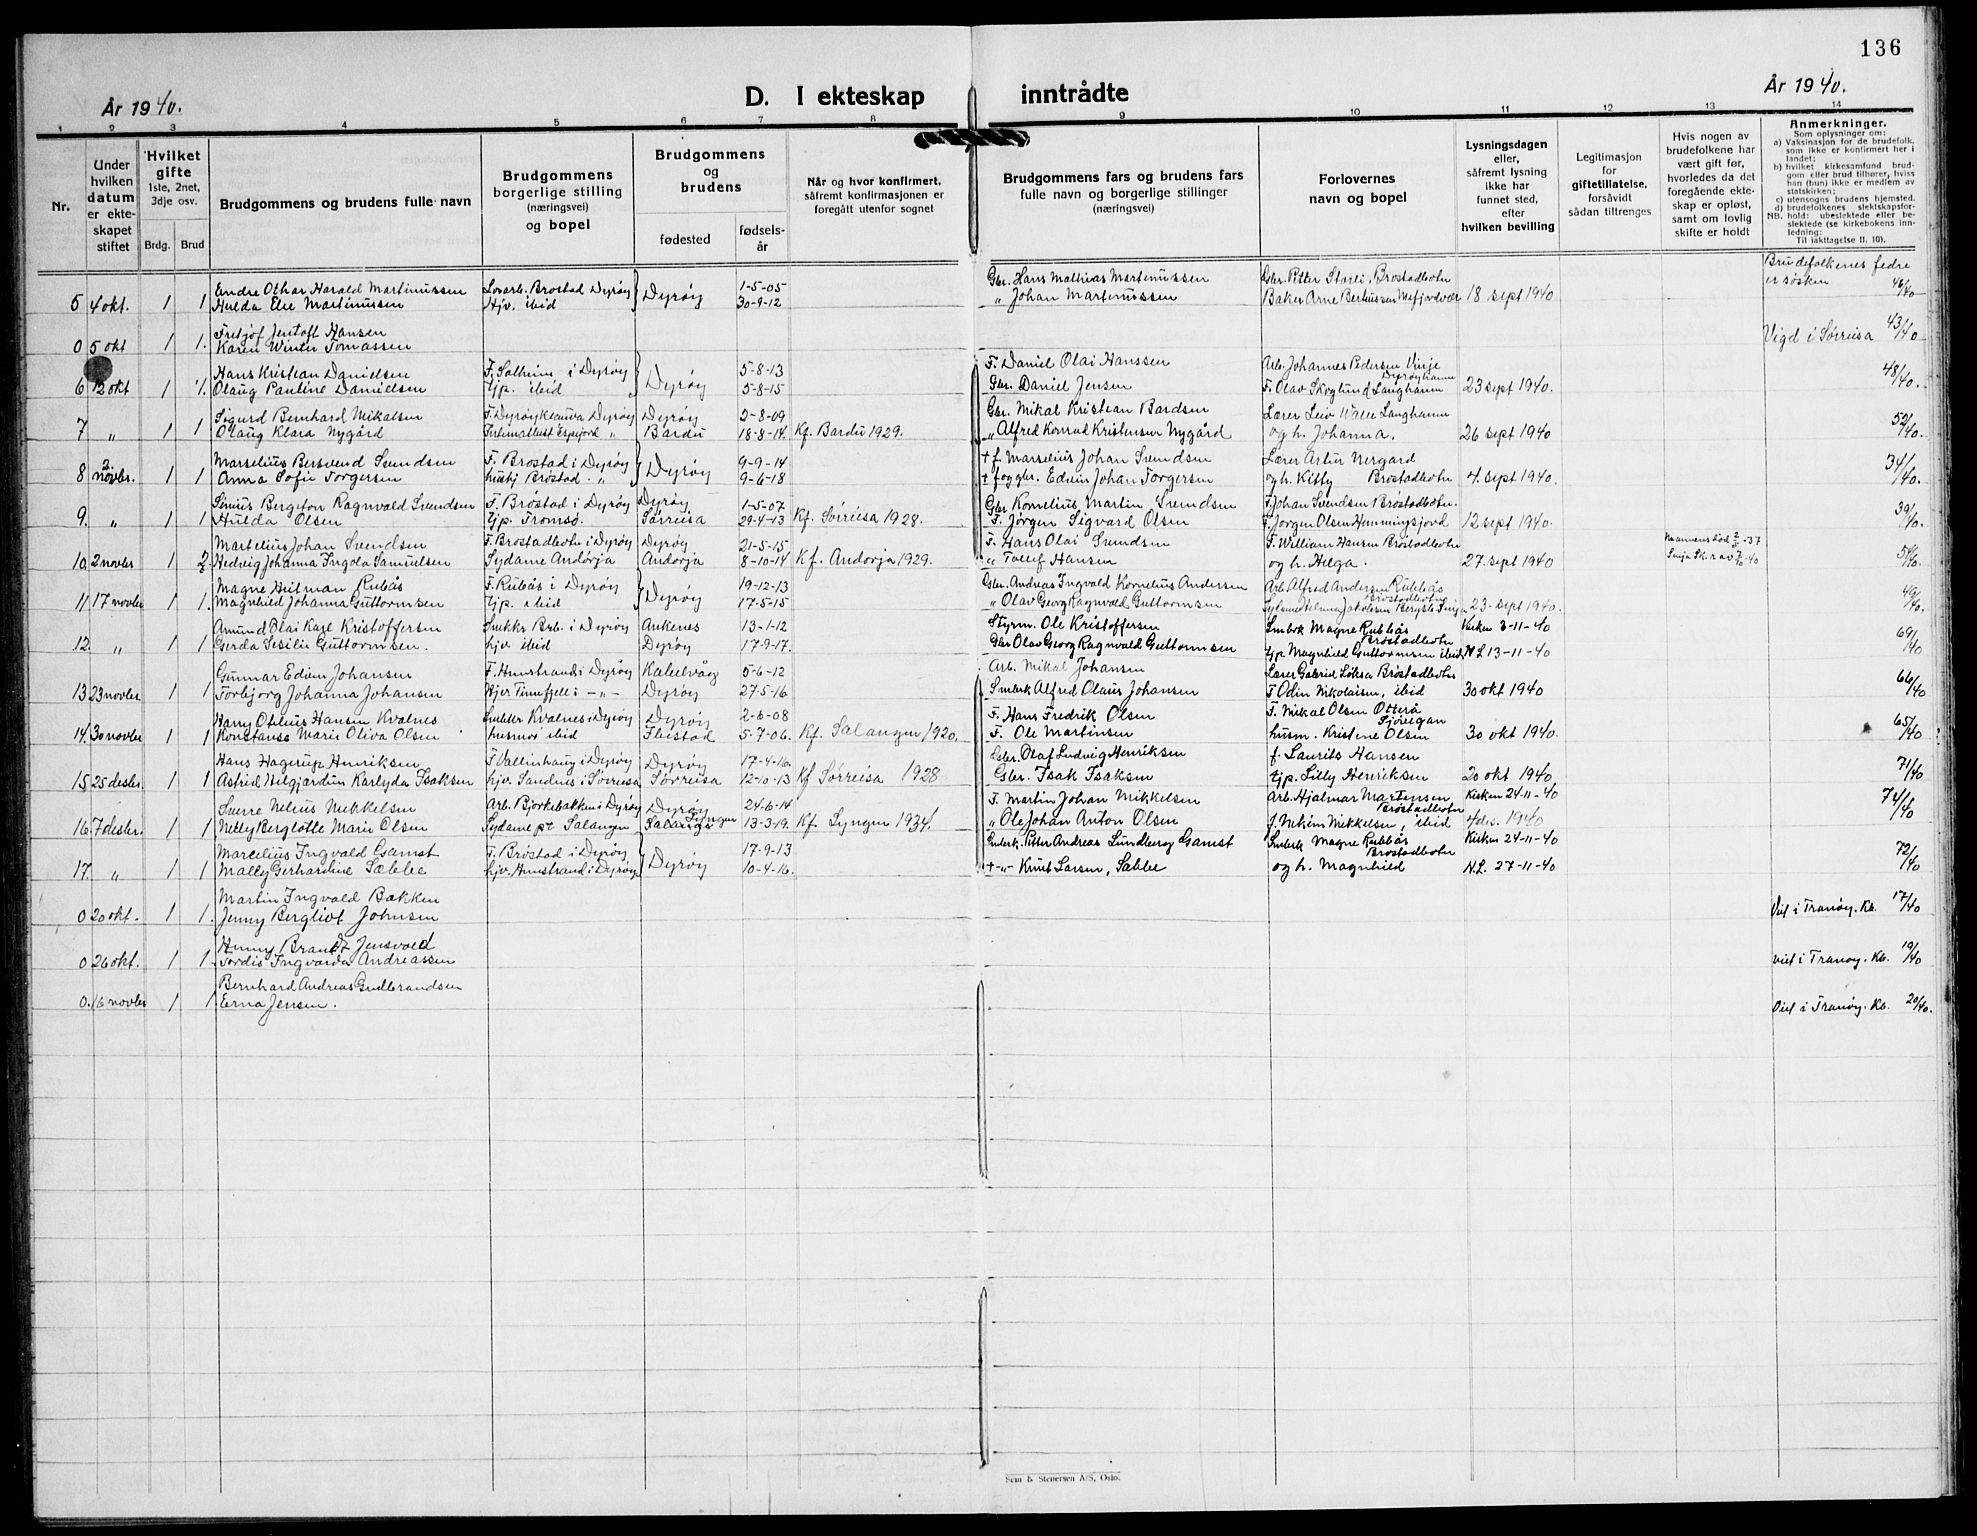 136
År 1940.
D. I ekteskap inntrådte
År 1940.
1 2 3 4 5 6 7 8 9 10 11 12 13 14
Nr.
Under hvilken datum er ekte- skapet stiftet
Hvilket gifte
1ste, 2net, 3dje osv.
Brdg. Brud
Brudgommens og brudens fulle navn
Brudgommens borgerlige stilling (næringsvei) og bopel
Brudgommens og brudens
fødested
fødsels- år
Når og hvor konfirmert, såfremt konfirmasjonen er foregått utenfor sognet
Brudgommens fars og brudens fars fulle navn og borgerlige stillinger (næringsvei)
Forlovernes navn og bopel
Lysningsdagen eller, såfremt lysning ikke har funnet sted, efter hvilken bevilling
Legitimasjon for giftetillatelse, forsåvidt sådan tiltrenges
Hvis nogen av brudefolkene har vært gift før, hvorledes da det foregående ekte- skap er opløst, samt om lovlig skifte er holdt
Anmerkninger.
Som oplysninger om:
a) Vaksinasjon for de brudefolk, som ikke er konfirmert her i landet;
b) hvilket kirkesamfund brud- gom eller brud tilhører, hviss han (hun) ikke er medlem av statskirken;
c) utensogns brudens hjemsted.
d) brudefolkenes slektskapsfor- hold: ubeslektede eller be- slektede (se kirkebokens inn- ledning:
NB.
Til iakttagelse II. 10).
Endre Othar Harald Martinussen Løsarb. Brøstad Dyrøy 1-5-05 Gbr. Hans Mathias Martinussen Gbr. Peter Starei, Brøstadbotn Brudefolkenes fedre
5 4 okt. 1 1 Hulda Elie Martinussen Hjv. ibid Dyrøy 30-9-12 „ Johan Martinussen Baker Arne Berntssen Mefjordvær 18 sept 1940 er søsken 46/40
Fritjof Jentoft Hansen
0 5 okt 1 1. Karen Winter Tomassen Vigd i Sørreisa 43/40
Hans Kristian Danielsen F. Solheim i Dyrøy 5-8-13 F. Daniel Olai Hanssen Arb. Johannes Pedersen Vinje Dyrøyhamn
6 12 okt 1 1. Olaug Pauline Danielsen tjp. ibid Dyrøy 5-8-15 Gbr. Daniel Jensen F. Olav Skoglund Langhamn 23 sept 1940. 48/40.
Sigurd Bernhard Mikalsen F. Dyrøyklauva Dyrøy Dyrøy 2-8-09 Gbr. Mikal Kristian Bårdsen Lærer Leiv Valle Langhamn
7 „ 1 1 Olaug Klara Nygård Espejord „ Bardu 18-8-14. Kf. Bardu 1929. „ Alfred Konrad Kristensen Nygård og h. Johanna. 26 sept 1940 52/40.
Marselius Bersvend Svendsen F. Brøstad i Dyrøy 9-9-14 + f. Marselius Johan Svendsen Lærer Artur Nergård
8 2 novbr. 1 1 Anna Sofie Torgersen Brøstad. „ Dyrøy 9-6-18 + f og gbr. Edvin Johan Torgersen og h. Kitty Brøstadbotn 4. sept 1940. 34/40.
Sinius Bergeton Ragnvald Svendsen F. Brøstad i Dyrøy Dyrøy 1-5-07 Gbr Kornelius Martin Svendsen F. Johan Svendsen Brøstadbotn.
9. „ 1 1 Hulda Olsen tjp. Tromsø. Sørreisa 29-4-13 Kf. Sørreisa 1928. F. Jørgen Sigvard Olsen F. Jørgen Olsen Hemmingsjord 12 sept 1940. 39/40.
Martelius Johan Svendsen F. Brøstadbotn i Dyrøy Dyrøy 21-5-15 F. Hans Olai Svendsen F. William Hansen Brøstadbotn
10. 2 novbr 1 2 Hedvig Johanna Ingda Samuelsen Sydame Andørja Andørja 8-10-14 Kf. Andørja 1929. „ Tollef Hansen og h. Helga. 27. sept 1940 54/40.
Magne Heitman Rubås F. Rubås i Dyrøy 19-12-13 Gbr. Andreas Ingvald Kornelius Andersen Arb. Alfred Andersen Rubbås Brøstadbotn
11 17 novbr 1 1. Magnhild Johanna Guttormsen tjp. ibid Dyrøy 17-5-15 „ Olav Georg Ragnvald Guttormsen 23-sept 1940. 49/40.
Amund Olai Karl Kristoffersen Snekker Brb. i Dyrøy Ankenes 13-1-12 Styrm. Ole Kristoffersen Smbrk Magne Rubbås Brøstadbotn Kirken 3-11-40
12. „ 1 1 Gerda Sesilie Guttormsen. hjv ibid Dyrøy 17-9-17. Gbr Olav Georg Ragnvald Guttormsen tjp Magnhild Guttormsen ibid N.L 13-11-40 69/40
Gunnar Edvin Johansen F. Hundstrand i Dyrøy Kaldvåg 5-6-12 Arb. Mikal Johansen Lærer Gabriel Loksa Brøstadbotn
13 23 novbr 1 1 Torbjørg Johanna Johansen Hjv Finnfjell i -„- Dyrøy 27-5-16 Småbrk Alfred Olaus Johansen F Odin Nikolaisen, ibid 30 okt 1940 66/40
Harry Otelius Hansen Kvalnes Kvalnes i Dyrøy Dyrøy 2-6-08 F. Hans Fredrik Olsen F. Mikal Olsen Otterå Sjøvegan
14. 30 novbr 1 1 Konstanse Marie Oliva Olsen husmor ibid Ibestad 5-7-06. Kf. Salangen 1920. F. Ole Martinsen husm. Kristine Olsen 30 okt 1940. 65/40
Hans Hagerup Henriksen F. Vollinhaug i Dyrøy Dyrøy 17-4-16. Gbr. Olaf Ludvig Henriksen f. Laurits Hansen
15. 25 desbr. 1 1 Astrid Nelgjardin Karlyda Isaksen hjv. Sandnes i Sørreisa Sørreisa 12-10-13 Kf Sørreisa 1928 Gbr. Isak Isaksen tjp. Lilly Henriksen 20 okt 1940. 71/40
Sverre Nelius Mikkelsen Arb. Bjørkebakken i Dyrøy Dyrøy 24-6-14 F. Martin Johan Mikkelsen Arb. Hjalmar Martensen Brøstadbotn Kirken 24-11-40
16. 7 desbr. 1 1 Nelly Berglotte Marie Olsen Sydame pt Salangen Lyngen 13-3-19. Kf. Lyngen 1934. „ Ole Johan Anton Olsen J. Nekim Mikkelsen, ibid 4 des. 1940 74/40
Marcelius Ingvald Gamst F. Brøstad i Dyrøy 17-9-13 Småbrk. Peter Andreas Lundberg Gamst Småbrk Magne Rubbås Brøstadbotn Kirken 24-11-40
17. „ 1 1 Mally Gerhardine Sæbbe hjv. Hundstrand i Dyrøy Dyrøy 10-4-16. +-„- Knut Larsen, Sæbbe og h. Magnhild N.L. 27-11-40 72/40
Martin Ingvald Bakken
0 20 okt. 1 1. Jenny Bergliot Johnsen Viel i Tranøy. Kb. 17/40
Henny Brandt Jensvold
0 26 okt. 1 1. Tordis Ingvarda Andreassen viel i Tranøy. Kb. 19/40
Bernhard Andreas Gudbrandsen
0. 16 novbr 1 1 Erna Jensen. Viel i Tranøy. Kb. 20/40.
Sem & Stenersen A/S, Oslo.